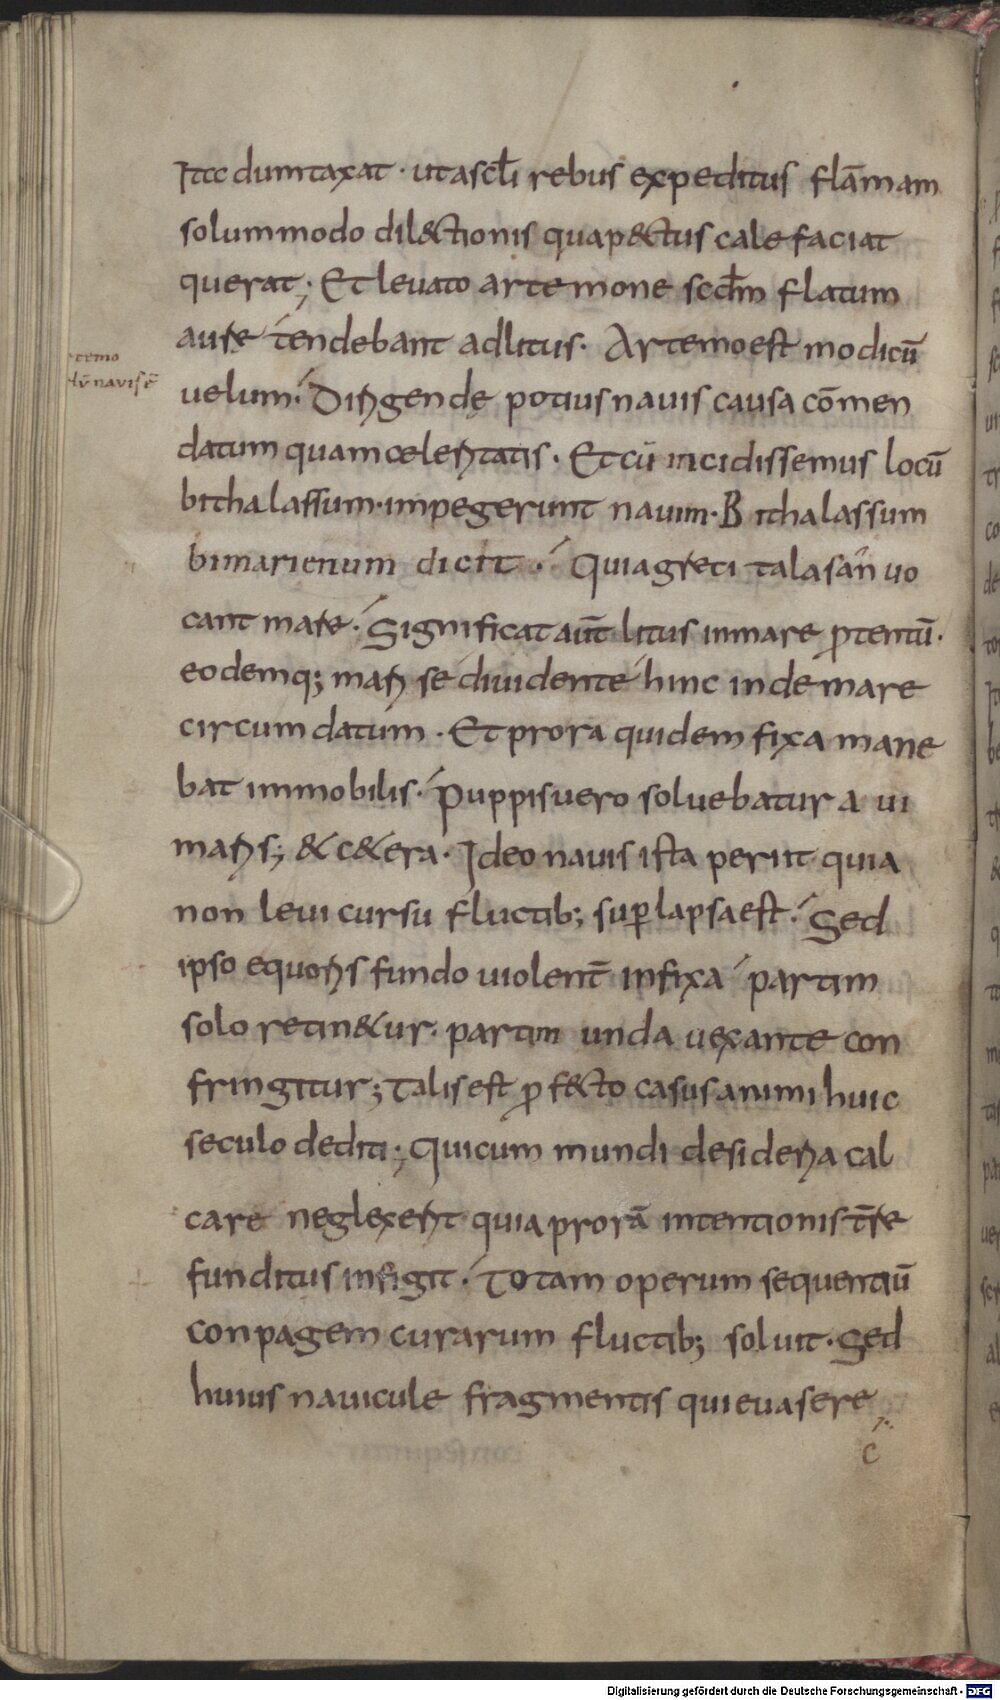 Itcc dumtaxat · ut a scl̄i rebus expeditus flāmam
solummodo dil&ctionis qua p&ctus calefaciat
querat; Et levato artemone scd̄m flatum
aure tendebant ad litus · Artemo est modicū
uelum · Dirigende potius nauis causa cōmen
datum quam celeritatis · Et cū incidissemus locū
bithalassum · impegerunt nauim · Bithalassum
bimarienum dicit · Quia greci talasan uo
cant mare · Significat aūt litus in mare ꝓtentū ·
eodemq; mari se diuidente hinc inde mare
circumdatum · Et prora quidem fixa mane
bat immobilis · Puppis uero soluebatur a ui
maris; & c&era · Ideo nauis ista periit quia
non leui cursu fluctib; suꝑlapsa est · Sed
ipso equoris fundo uiolent̄ infixa partim
solo retin&ur · partim unda uexante con
fringitur; Talis est ꝓf&cto casus animi huic
seculo dediti; Qui cum mundi desideria cal
care neglexerit quia prorā intentionis t̄re
funditus infigit · Totam operum sequentiū
conpagem curarum fluctib; soluit · Sed
huius nauicule fragmentis qui euasere
c
temo
nauis ē
Digitalisierung gefördert durch die Deutsche Forschungsgemeinschaft - DFG